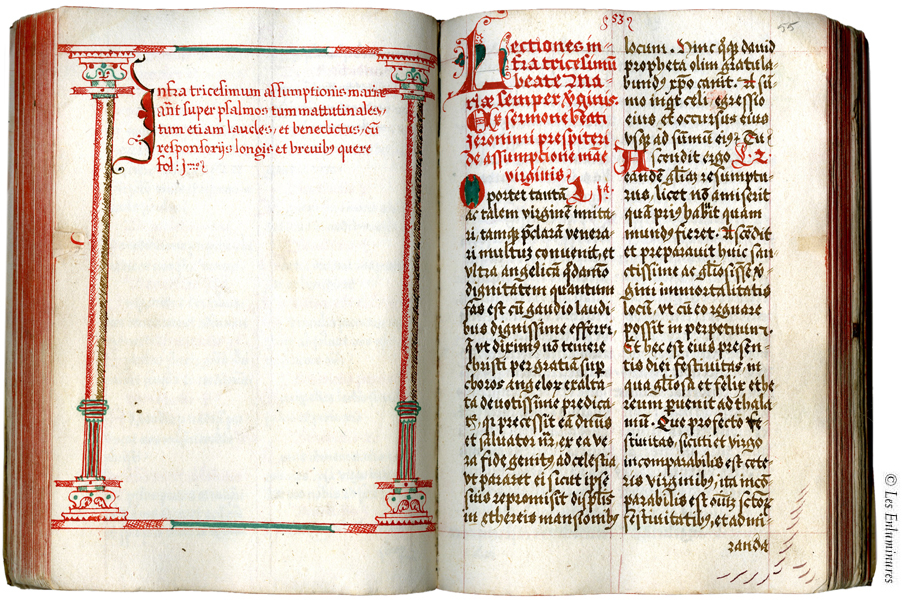 Infra tricesimum assumptionis mariæ
añt super psalmos tum matutinales,
tum etiam laudes, et benedictus, cū
responsorijs longis et brevibꝰ quere
fol:
53
55
Lectiones in-
fra tricesimū
beate Ma
riæ semper ṽginis.
Ex sermone beati
ieronimi prespiteri
de assumpcione maē
virginis
Oportet tantā L ja.
ac talem virginē imita
ri, tamqꝫ p̄clarā venera
ri multuꝫ convenit, et
ultra angelicā q̄damō
dignitatem quantum
fas est cū gaudio laudi
bus dignissime efferri,
q̄ ut diximꝰ nō temere
christi per gratiam sup̄
choros angeloꝝ exalta
ta devotissime predica
tꝭ, qͥ precessit eā dn̄us
et salvator nr̄, ex ea ve
ra fide genitꝰ ad celestia
ut pararet ei sicut ipse
suis repromisit disp̄lis
in ethereis mansionibꝰ
locum. Hinc qͦqꝫ david
propheta olim gratula
bundꝰ xp̄o canit. A sū
mo inqͥt celi egressio
eius et occursus eius
usqꝫ ad sūmum eiꝰ. Tu
Ascendit ergo L 2
eandē gliāꝫ resumptu
rus, licet nō amiserit
quā priꝰ habuit quam
mundꝰ fieret. Ascēdit
et preparavit huic san
ctissime ac gliosissē ṽ
gini immortalitatis
locū, ut cū eo regnare
possit in perpetuum.
Et hec est eius presen
tis diei festivitas, in
qua gliōsa et felix ethe
reum puenit ad thala
mū. Que profecto fe
stivitas, sicuti et virgo
incomparabilis est cete
ris virginibꝰ, ita incō
parabilis est oīuꝫ sctoꝝ
festivitatibꝰ, et admi-
randa
© Les Enluminures